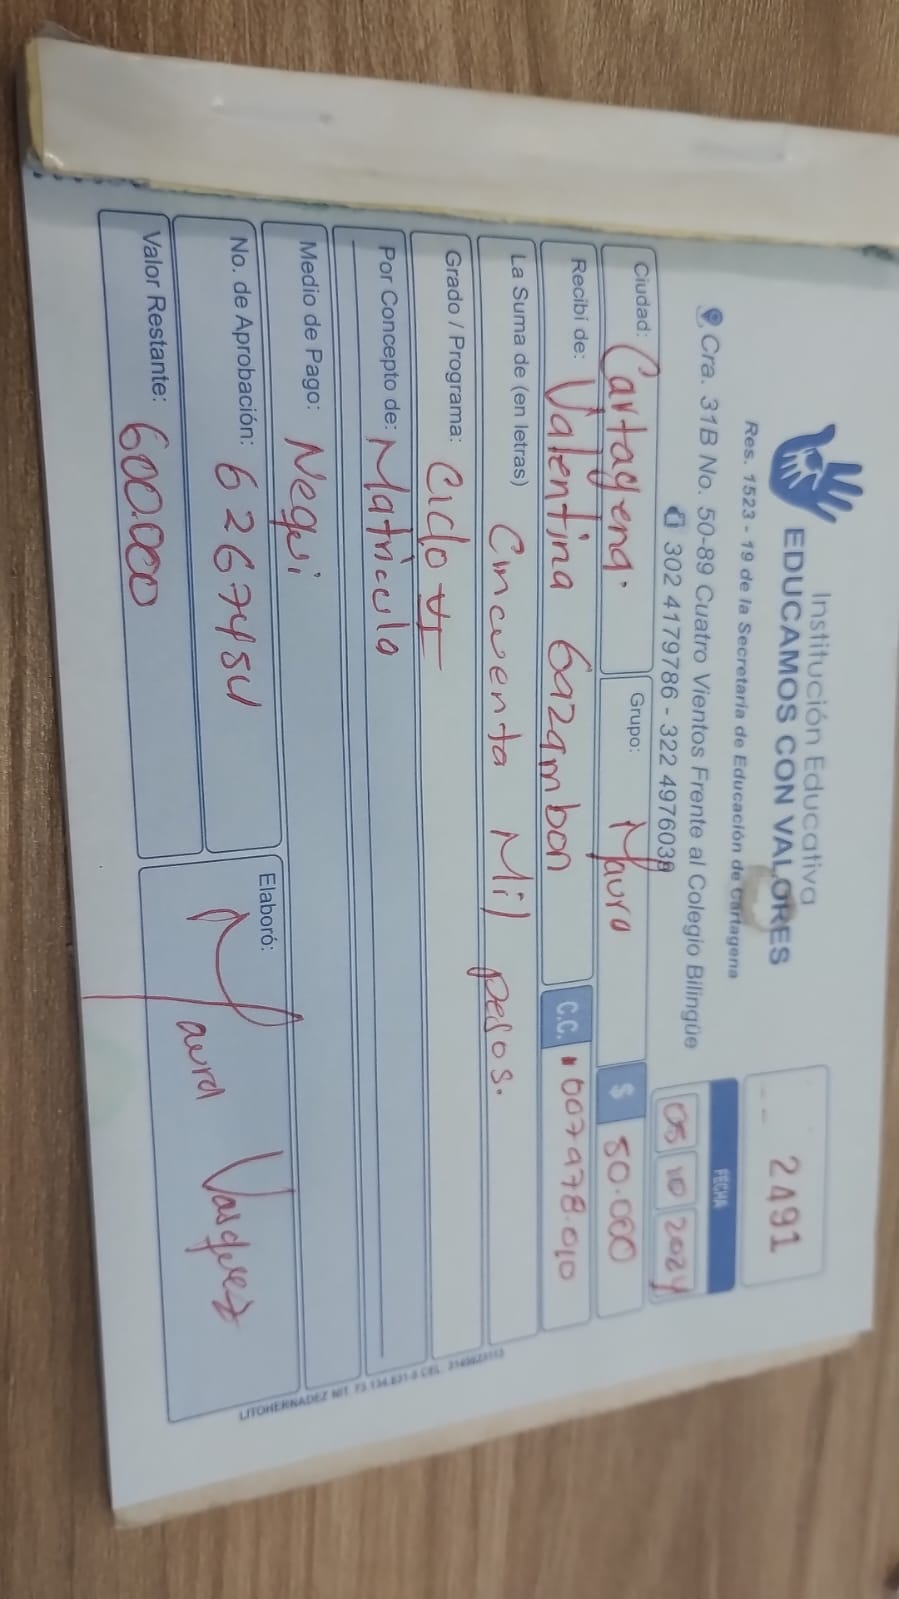 Institución Educativa
EDUCAMOS CON VALORES
Res. 1523 - 19 de la Secretaría de Educación de Cartagena
Cra. 31B No. 50-89 Cuatro Vientos Frente al Colegio Bilingüe
302 4179786 - 322 4976038
2491
FECHA
05 10 2024
Ciudad: Cartagena. Grupo: Maura $ 50.000
Recibí de: Valentina Gazambon C.C. 1007978.010
La Suma de (en letras) Cincuenta Mil pesos.
Grado / Programa: Ciclo VI
Por Concepto de: Matricula
Medio de Pago: Nequi
No. de Aprobación: 6267454
Valor Restante: 600.000
Elaboró: Maura Vasquez
LITOHERNADEZ NIT. 73.134.831-8 CEL. 3145623113